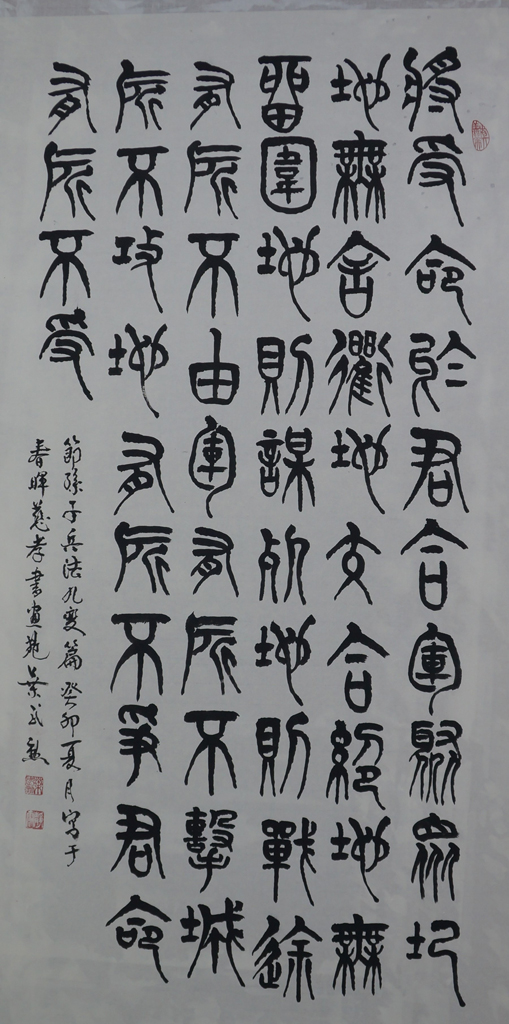 將受命於君合軍聚眾圮
地無舍衢地交合絕地無
留圍地則謀死地則戰途
有所不由軍有所不擊城
所不攻地有所不爭君命
有所不受
節孫子兵法九變篇癸卯夏月寫于
春暉慈孝書畫苑葉武